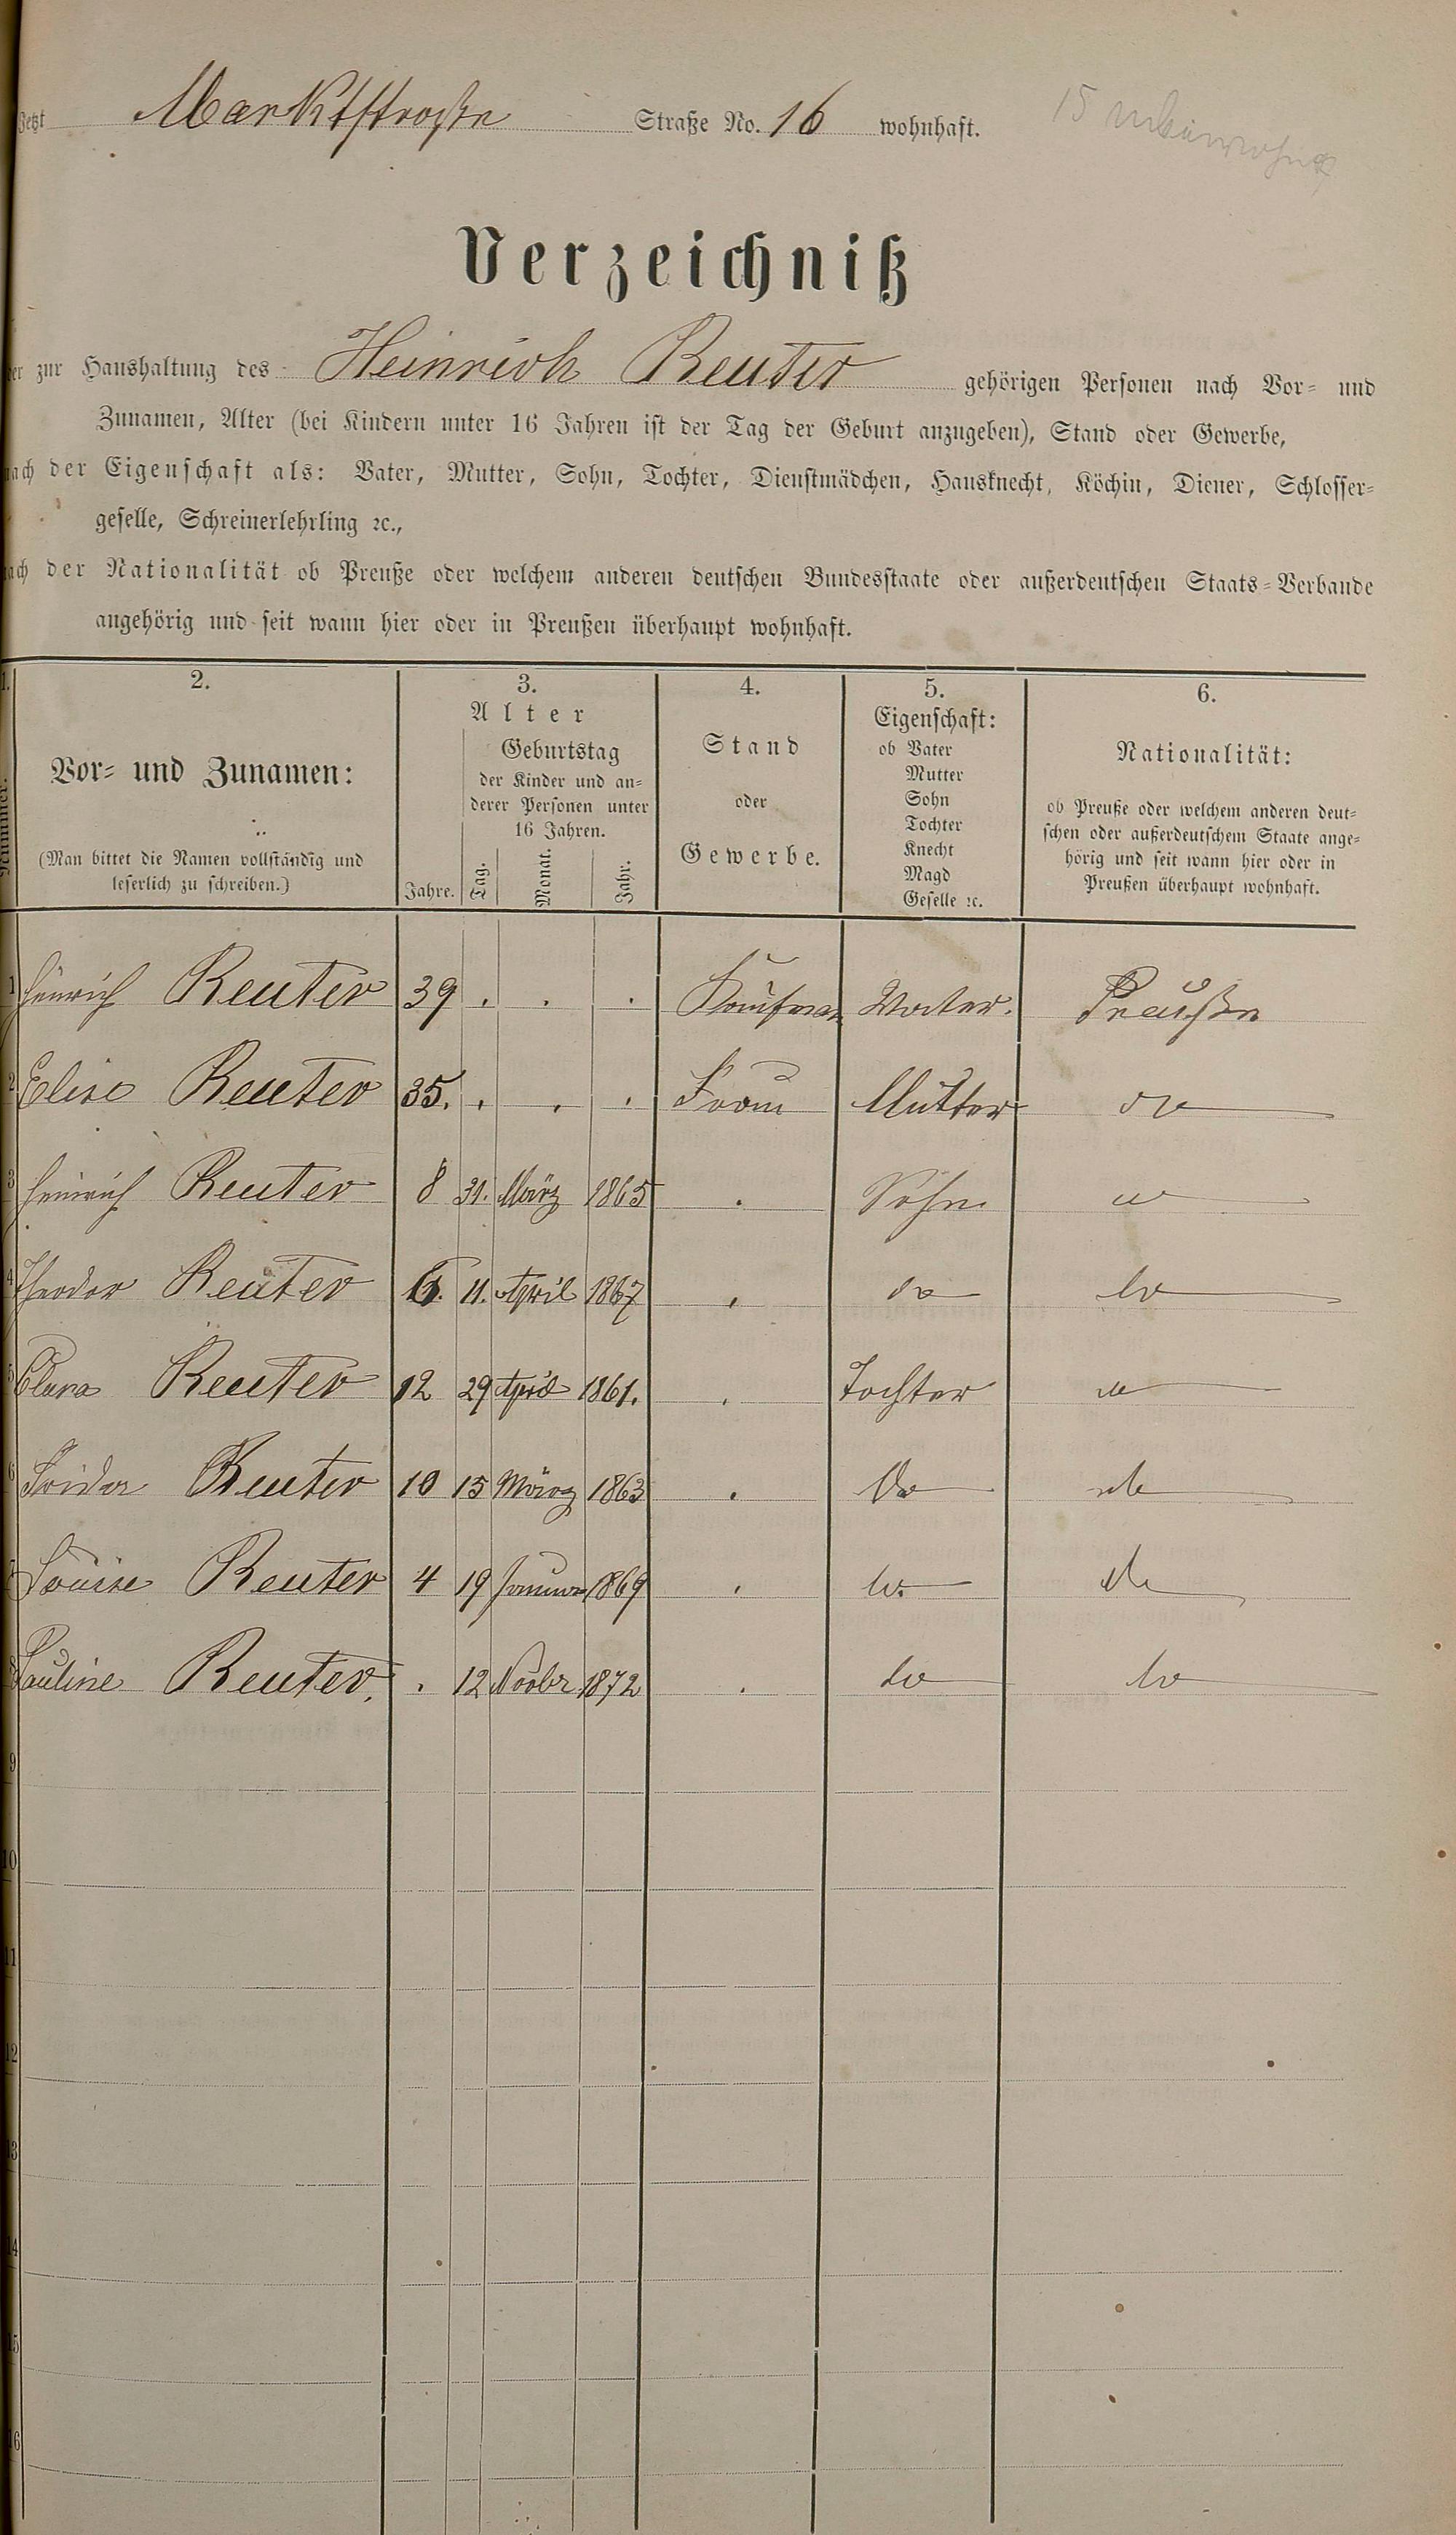 Jetzt Marktstraße Straße No. 16 wohnhaft.
15
Verzeichniß
der zur Haushaltung des Heinrich Reuter gehörigen Personen nach Vor- und
Zunamen, Alter (bei Kindern unter 16 Jahren ist der Tag der Geburt anzugeben), Stand oder Gewerbe,
nach der Eigenschaft als: Vater, Mutter, Sohn, Tochter, Dienstmädchen, Hausknecht, Köchin, Diener, Schlosser-
geselle, Schreinerlehrling ꝛc.,
nach der Nationalität ob Preuße oder welchem anderen deutschen Bundesstaate oder außerdeutschen Staats-Verbande
angehörig und seit wann hier oder in Preußen überhaupt wohnhaft.
1.
Nummer.
2.
Vor- und Zunamen:
(Man bittet die Namen vollständig und
leserlich zu schreiben.)
3.
Alter
Jahre.
Geburtstag
der Kinder und an-
derer Personen unter
16 Jahren.
Tag. Monat. Jahr.
4.
Stand
oder
Gewerbe.
5.
Eigenschaft:
ob Vater
Mutter
Sohn
Tochter
Knecht
Magd
Geselle ꝛc.
6.
Nationalität:
ob Preuße oder welchem anderen deut-
schen oder außerdeutschem Staate ange-
hörig und seit wann hier oder in
Preußen überhaupt wohnhaft.
1 Heinrich Reuter 39 . . . Kaufman Vater. Preußen
2 Elise Reuter 35. . . . Frau Mutter do
3 Heinrich Reuter 8 31. März 1865 . Sohn do
4 Theodor Reuter 6. 11. April 1867 . do do
5 Clara Reuter 12 29 April 1861. . Tochter do
6 Frida Reuter 10 15 März 1863 . do do
7 Louise Reuter 4 19 Januar 1869 . do do
8 Pauline Reuter. . 12 Novbr 1872 . do do
9
10
11
12
13
14
15
16